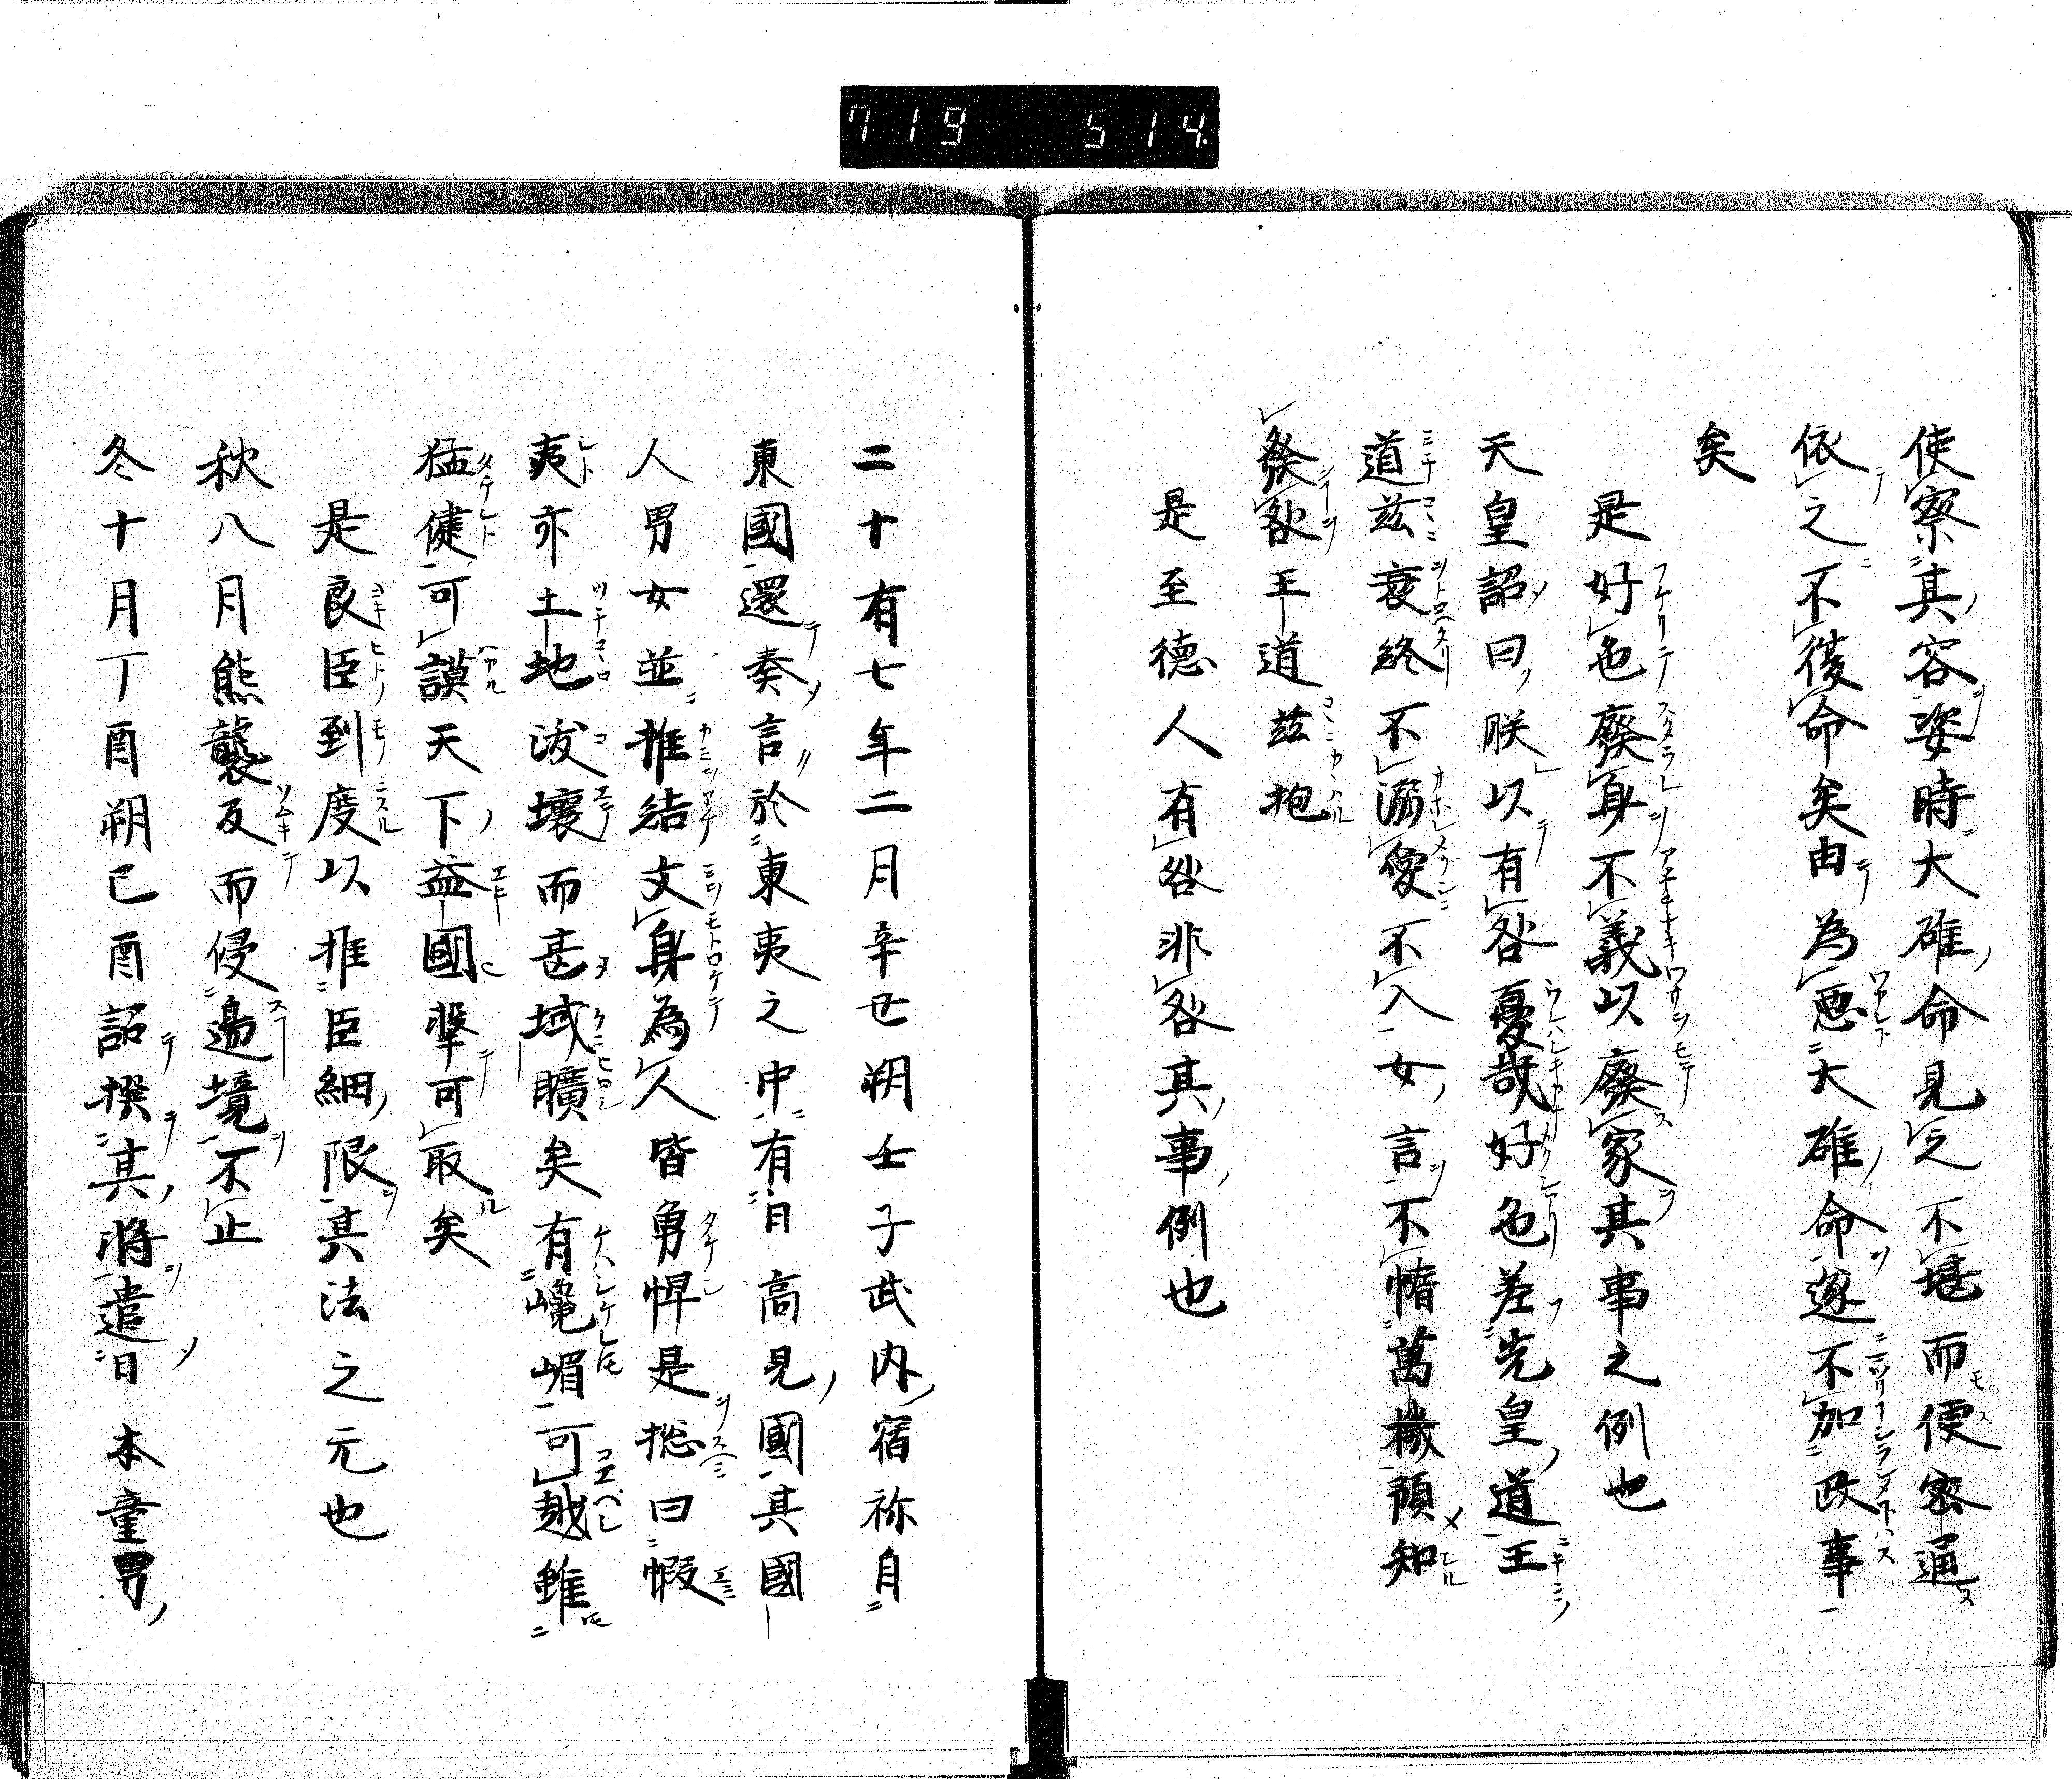 719 514.
使察其容姿時大碓命見之不堪而便密通
依之不復命矣由為惡大碓命遂不加政事
矣
是好色廢身不義以廢家其事之例也
天皇詔曰朕以有咎憂哉好色差先皇道王
道茲衰終不溺愛不入女言不惰萬機預知
發咎王道茲抱
是至德人有咎非咎其事例也
二十有七年二月辛丑朔壬子武內宿祢自
東國還奏言於東夷之中有日高見國其國
人男女並推結文身為人皆勇悍是捴曰蝦
夷亦土地沃壤而甚域曠矣有嶋嵋可越雖
猛健可謨天下益國擊可取矣
是良臣到度以推臣細限其法之元也
秋八月熊襲反而侵邊境不止
冬十月丁酉朔己酉詔撰其將遣日本童男